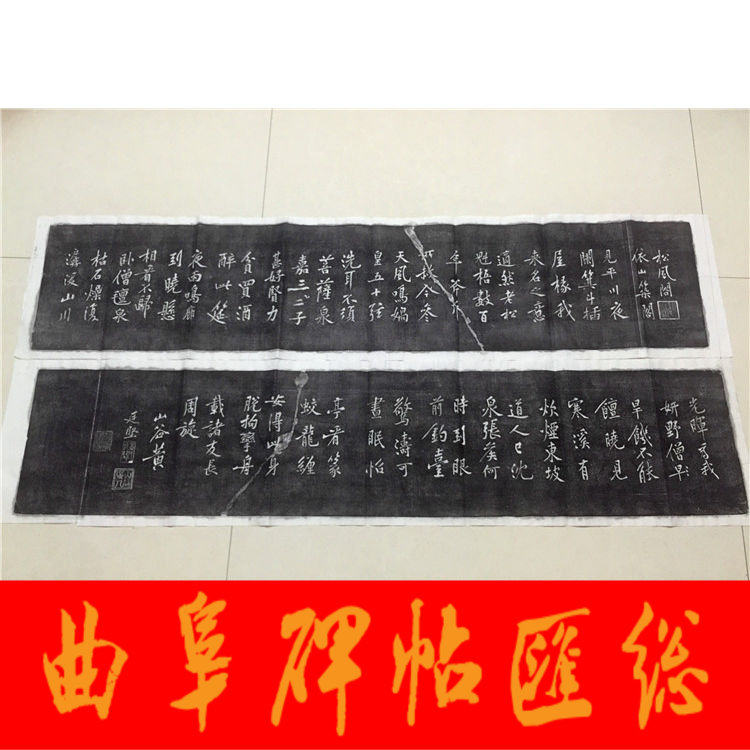 松風閣
依山築閣
見平川夜
闌箕斗插
屋椽我
来名之意
適然老松
魁梧數百
年斧斤
所赦今参
天風鳴媧
皇五十弦
洗耳不須
菩薩泉
嘉二三子
甚好賢力
貧買酒
醉此筵
夜雨鳴廊
到曉懸
相看不歸
卧僧氊泉
枯石燥復
潺湲山川
光暉爲我
妍野僧早
旱飢不能
饘曉見
寒溪有
炊煙東坡
道人已沈
泉張侯何
時到眼
前釣臺
驚濤可
晝眠怡
亭看篆
蛟龍纏
安得此身
脫拘攣舟
載諸友長
周旋
山谷黃
庭堅
曲阜碑帖匯總